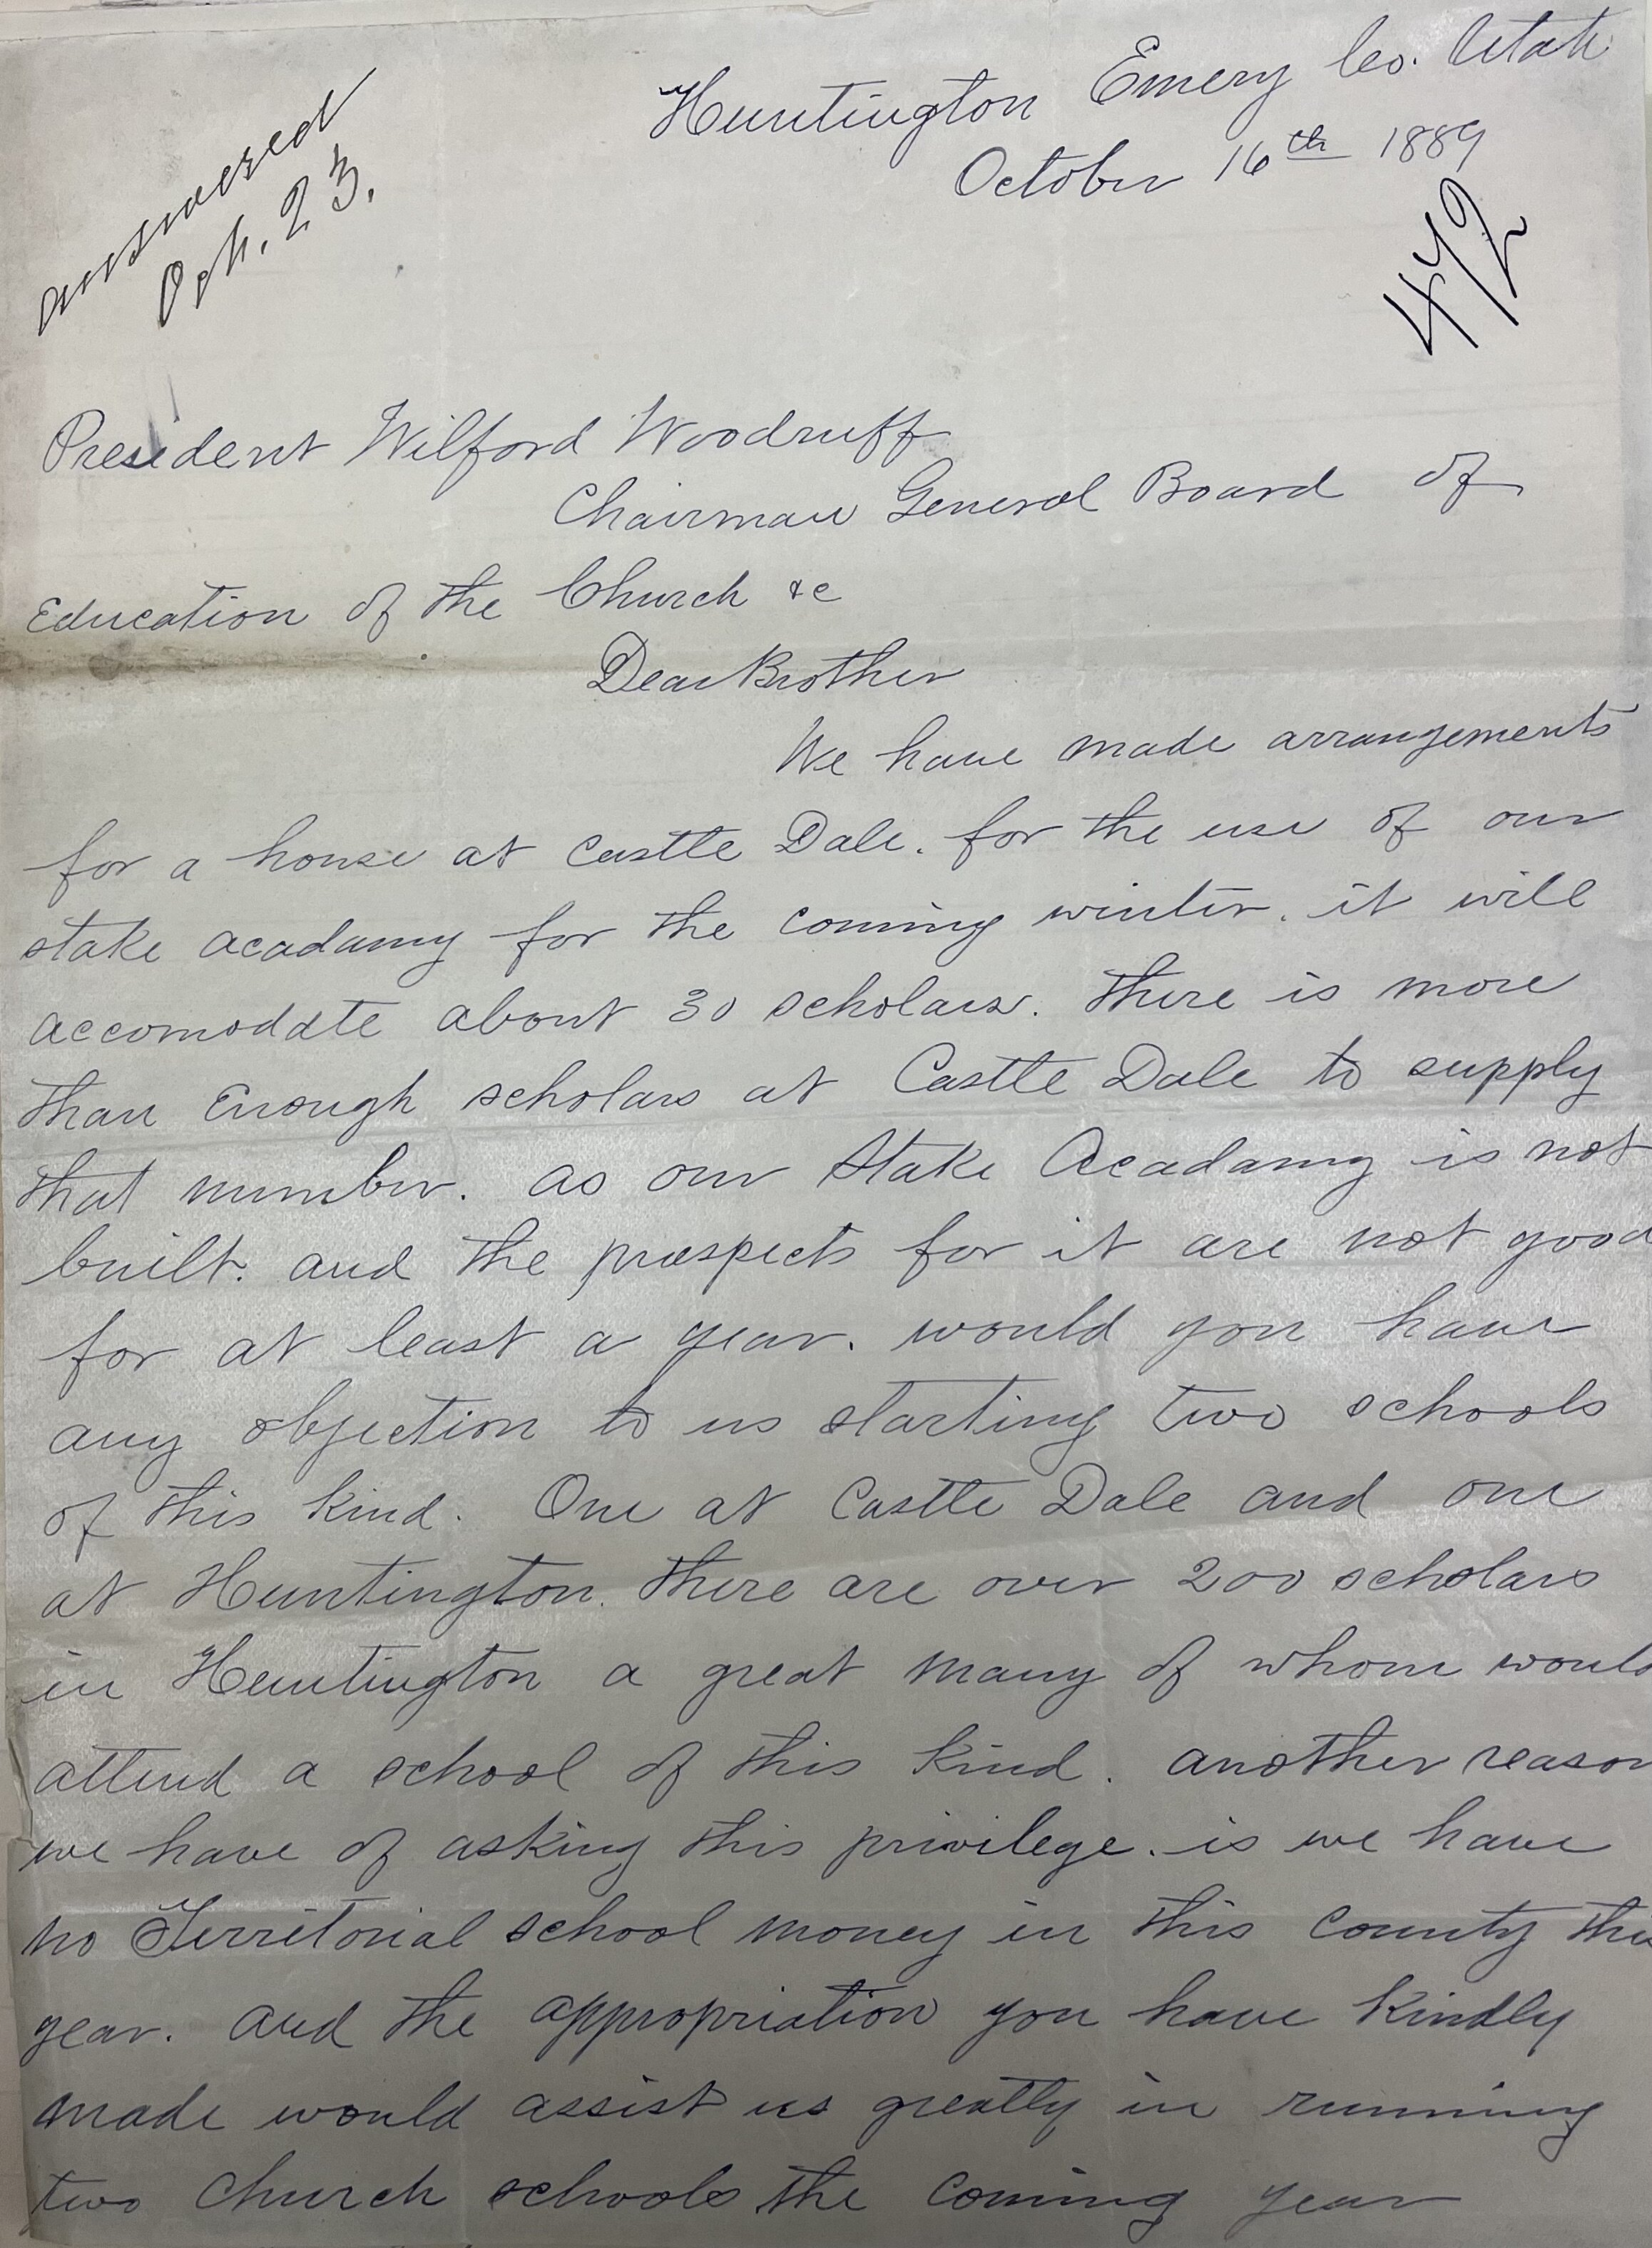 Huntington Emery Co. Utah
October 16th 1889
answered
Oct. 23.
472
President Wilford Woodruff
Chairman General Board of
Education of the Church &c
Dear Brother
We have made arrangements
for a house at Castle Dale. for the use of our
stake acadamy for the coming winter. it will
accomodate about 30 scholars. there is more
than Enough scholars at Castle Dale to supply
that number. as our Stake Acadamy is not
built. and the prospects for it are not good
for at least a year. would you have
any objection to us starting two schools
of this kind. One at Castle Dale and one
at Huntington. there are over 200 scholars
in Huntington a great many of whom would
attend a school of this kind. another reason
we have of asking this privilege. is we have
no Territorial school money in this County this
year. and the appropriation you have kindly
made would assist us greatly in running
two church schools the coming year